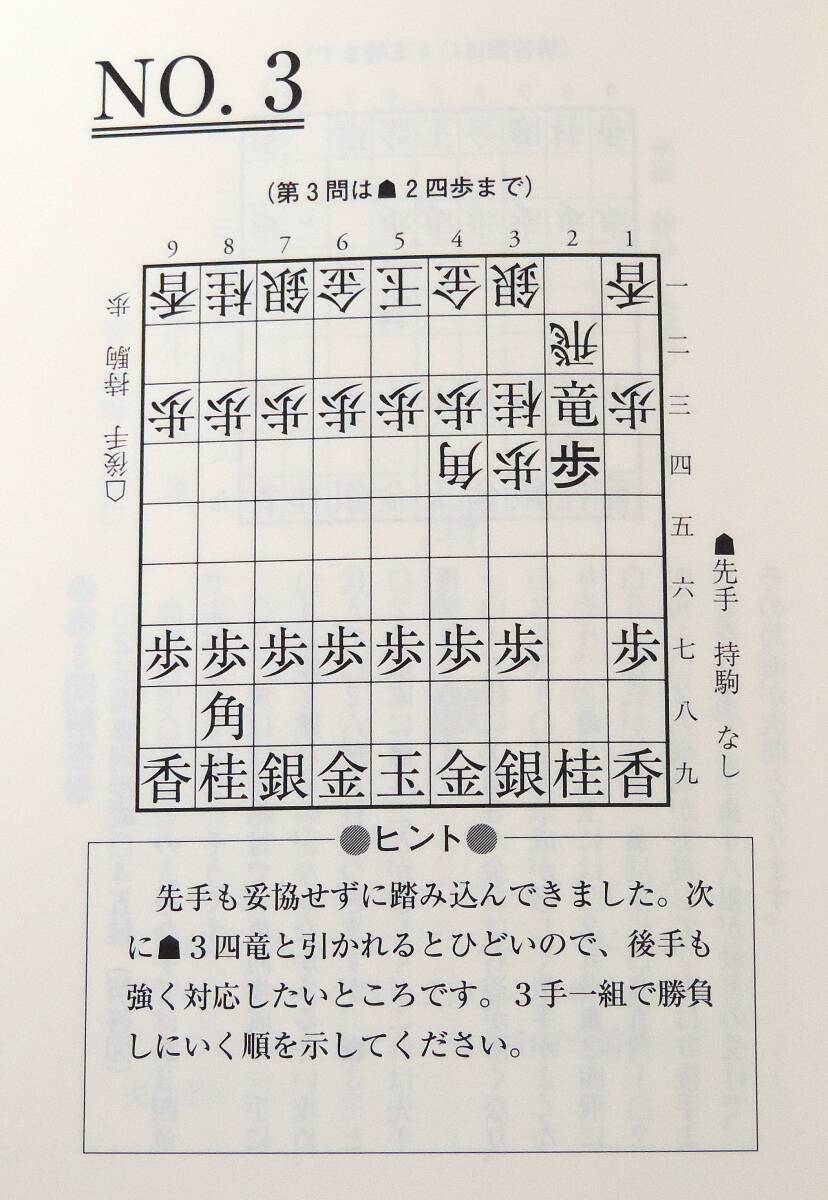 NO. 3
(第3問は☗2四歩まで)
9 8 7 6 5 4 3 2 1
香 桂 銀 金 玉 金 銀 香 一
飛 二
歩 歩 歩 歩 歩 歩 桂 竜 歩 三
角 歩 歩 四
五
六
歩 歩 歩 歩 歩 歩 歩 歩 七
角 八
香 桂 銀 金 玉 金 銀 桂 香 九
☖後手 持駒 歩
☗先手 持駒 なし
ヒント
先手も妥協せずに踏み込んできました。次
に☗3四竜と引かれるとひどいので、後手も
強く対応したいところです。3手一組で勝負
しにいく順を示してください。